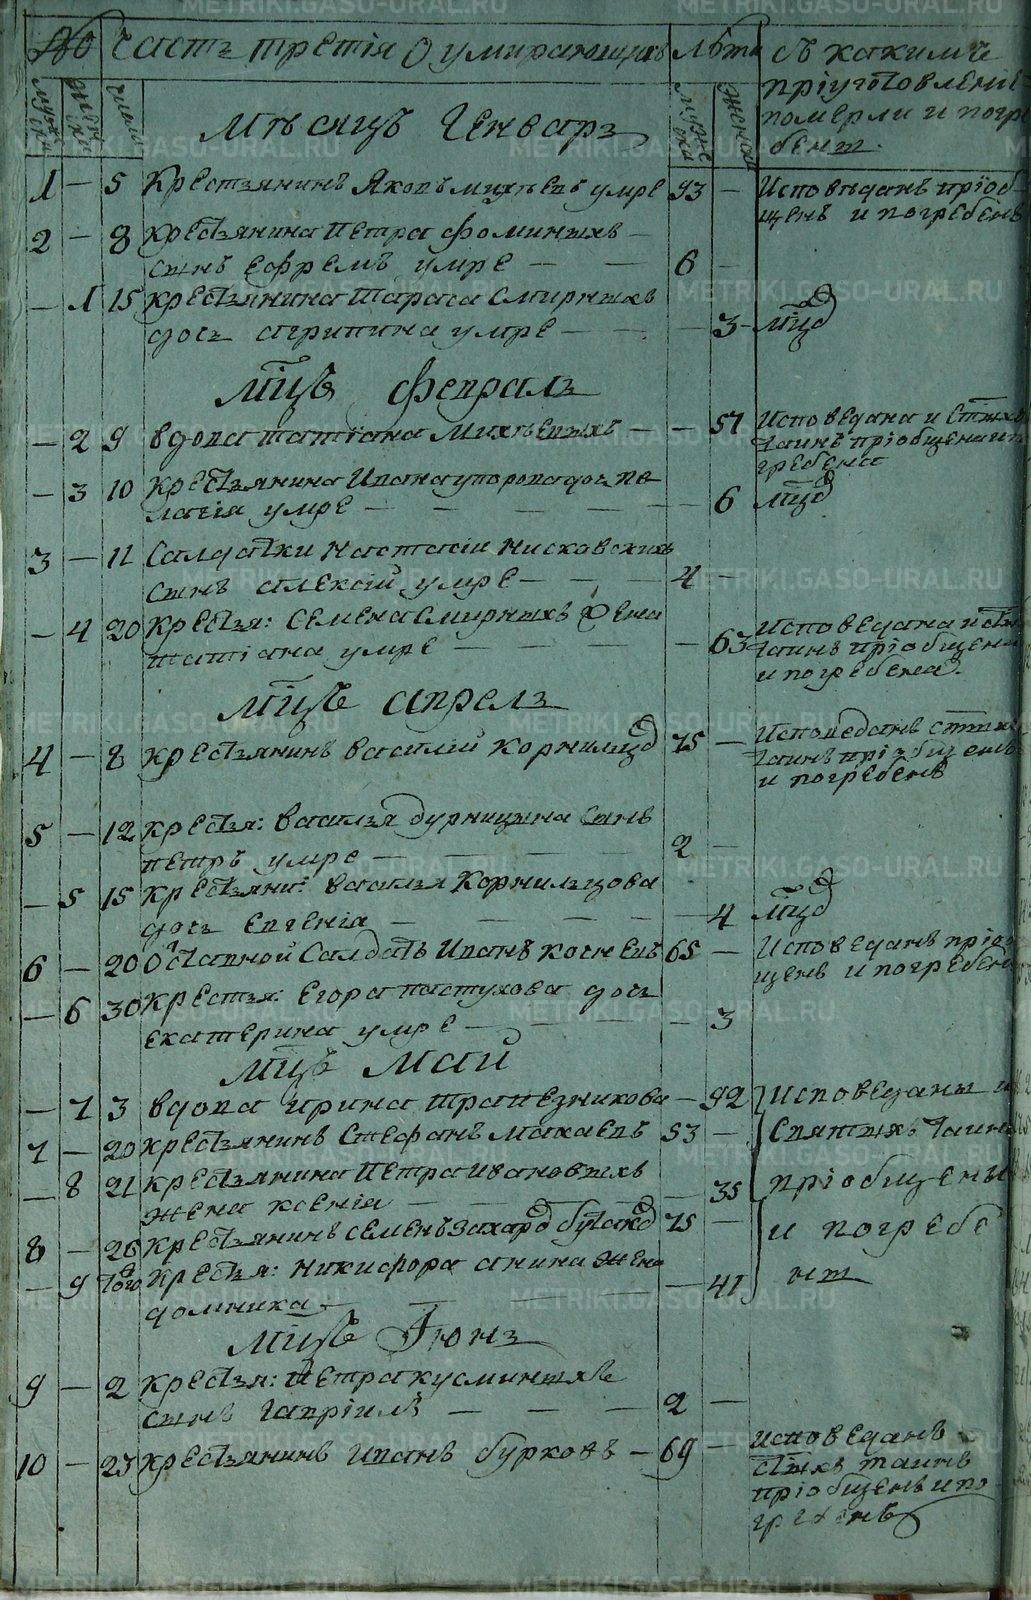 METRIKI.GASO-URAL.RU
№ Часть третія О умирающихъ Лѣта Съ какимъ
пріуготовленіе
мужеска женска число мужеска женска
Мѣсяцъ Генварь
померли и погре
бены.
1 — 5 Крестьянинъ Яковъ Михѣевъ умре 93 — Исповѣданъ пріоб
щенъ и погребенъ
2 — 8 Крестьянина Петра Фоминыхъ —
сынъ Ефремъ умре — — 6 —
— 1 15 Крестьянина Тараса Смирныхъ
дочь Агрипина умре — — — 3 — Млцд
Мцъ Февраль
— 2 9 вдова Татіана Михѣевыхъ — — 51 Исповедана и Стыхъ
Таинъ пріобщена и п
гребена
— 3 10 Крестьянина Ивана Упорова дочь Пе
лагія умре — — — — — 6 Млцд
3 — 11 Салдатки Настасіи Нисковскихъ
сынъ Алексій умре — — — 4 —
— 4 20 Крестья: Семена Смирныхъ Жена
Татіана умре — — — — 63 Исповедана и Ст
Таинъ пріобщена
и погребена.
Мцъ Апрель
4 — 8 Крестьянинъ Василій Корнилцд 75 — Исповеданъ Стых
Таинъ пріобщенъ
и погребенъ
5 — 12 Крестья: Василья Дурницына Сынъ
Петръ умре — — — 2 —
— 5 15 Крестьяни: Василья Корнильцова
дочь Евгенія — — — — — 4 Млцд
6 — 20 Отставной Салдатъ Иванъ Косневъ 65 — Исповеданъ пріоб
щенъ и погребенъ
— 6 30 Крестья: Егора Пастухова дочь
Екатерина умре — — — — 3
Мцъ Маій
— 7 3 вдова Ирина Трапезникова — 92 Исповеданы и
7 — 20 Крестьянинъ Стефанъ Махаевъ 53 — Святыхъ Таинъ
— 8 21 Крестьянина Петра Ивановыхъ
жена Ксенія — — — — 35 пріобщены
8 — 26 Крестьянинъ Семенъ 75 — и погребе
— 9 Того Крестья: Никифора Анина жена
Домника — — — — 41 ны
Мцъ Іюнь
9 — 2 Крестья: Петра Кусминыхъ
сынъ Гавріилъ — — — 2 —
10 — 23 Крестьянинъ Иванъ Бурковъ — 69 — исповеданъ
стыхъ таинъ
пріобщенъ и по
гребенъ